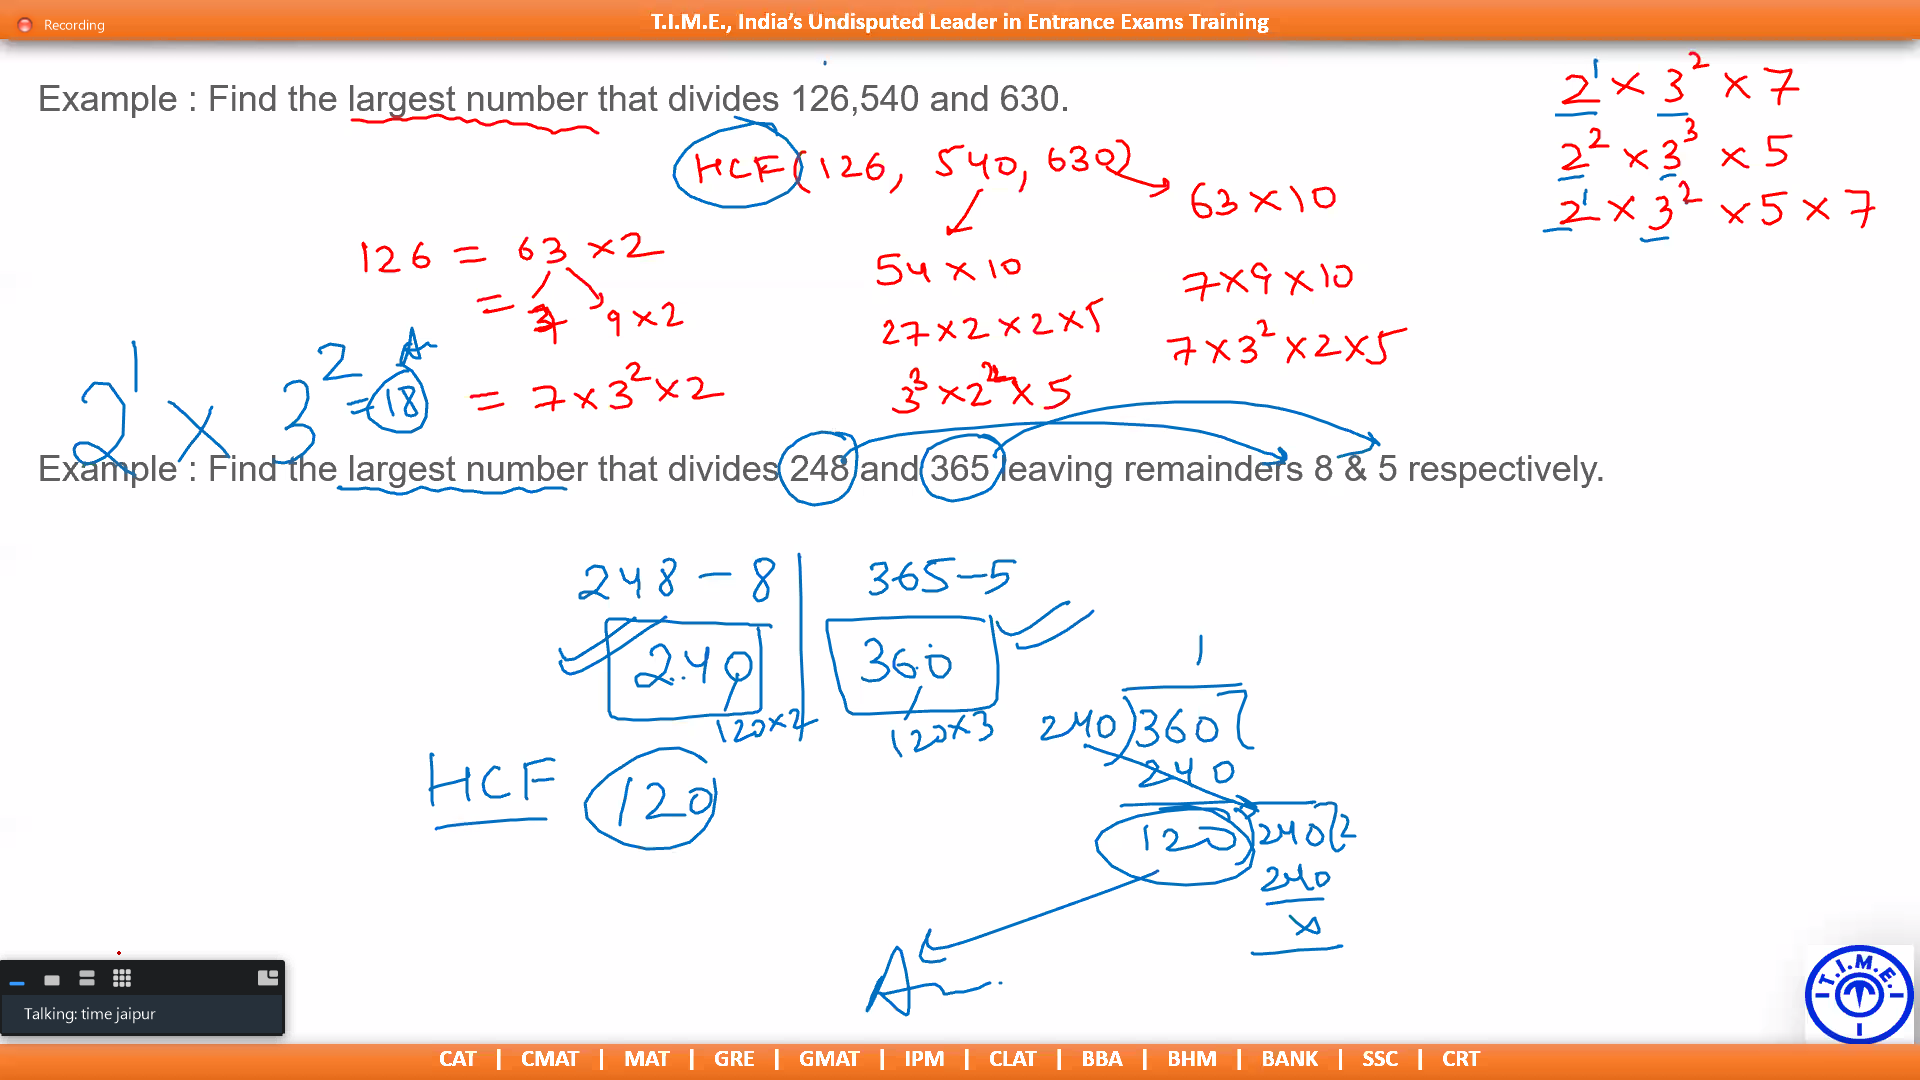 Recording
T.I.M.E., India's Undisputed Leader in Entrance Exams Training
Example : Find the largest number that divides 126,540 and 630.
HCF(126, 540, 630)
2¹ × 3² × 7
2² × 3³ × 5
2¹ × 3² × 5 × 7
63 × 10
126 = 63 × 2
54 × 10
7 × 9 × 10
= 7 9 × 2
27 × 2 × 2 × 5
7 × 3² × 2 × 5
= 7 × 3² × 2
3³ × 2² × 5
2¹ × 3² = 18
Example : Find the largest number that divides 248 and 365 leaving remainders 8 & 5 respectively.
248 - 8
365 - 5
240
360
120×2
120×3
1
240)360(
240
120)240(2
240
×
HCF 120
Talking: time jaipur
T.I.M.E.
CAT | CMAT | MAT | GRE | GMAT | IPM | CLAT | BBA | BHM | BANK | SSC | CRT